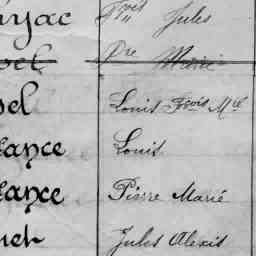 yac Jules
oel Pre Marie
oel Louis Fçois Mie
lance Louis
lance Pierre Marie
uet Jules Alexis